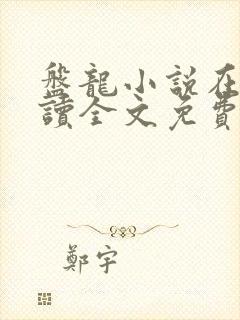 盤龍小說在
讀全文免費
鄭宇